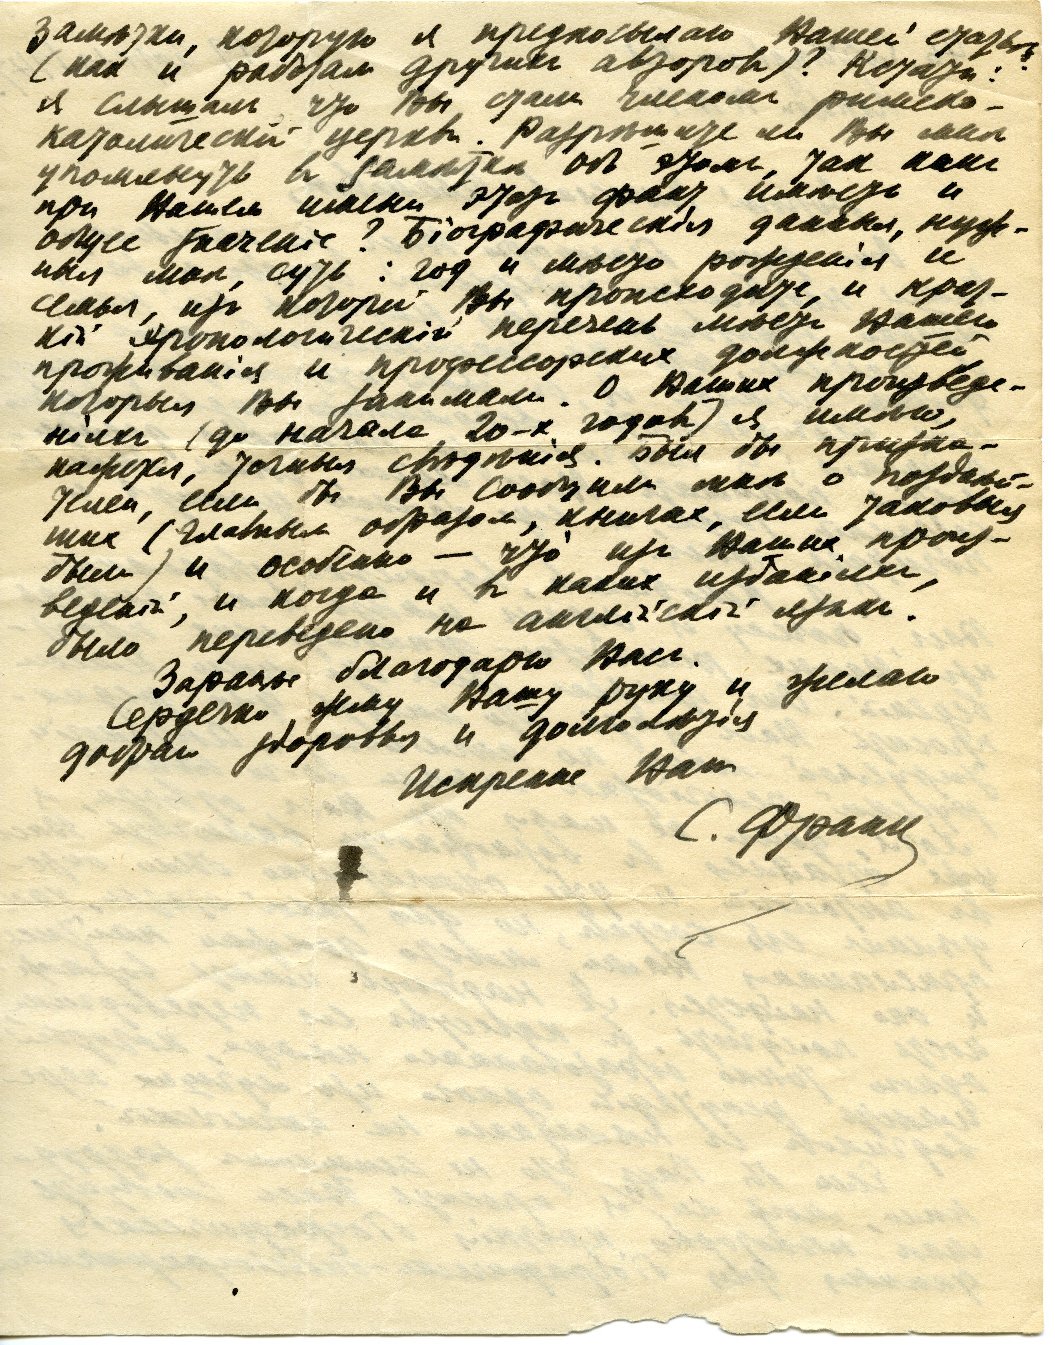 замѣтки, которую я предпосылаю Вашей статьѣ
(как и работам других авторов)? Кстати:
я слышалъ, что Вы стали членомъ римско-
католической церкви. Разрѣшите ли Вы мнѣ
упомянуть в замѣткѣ объ этомъ, так какъ
при Вашем имени этотъ факт имѣетъ и
общее значеніе? Біографическія данныя, нуж-
ныя мнѣ, суть: год и мѣсто рожденія и
семья, изъ которой Вы происходите, и крат-
кій хронологическій перечень мѣстъ Вашего
проживанія и профессорских должностей,
которыя Вы занимали. О Ваших произведе-
ніяхъ (до начала 20-х годов) я имѣю,
кажется, точныя свѣдѣнія. Был бы призна-
телен, если бы Вы сообщили мнѣ о позднѣй-
ших (главным образом, книгах, если таковыя
были) и особенно — что изъ Ваших произ-
веденій, и когда и в каких изданіяхъ,
было переведено на англійскій языкъ.
Заранѣе благодарю Васъ.
Сердечно жму Вашу руку и желаю
добраго здоровья и долголѣтія
Искренне Ваш
С. Франк